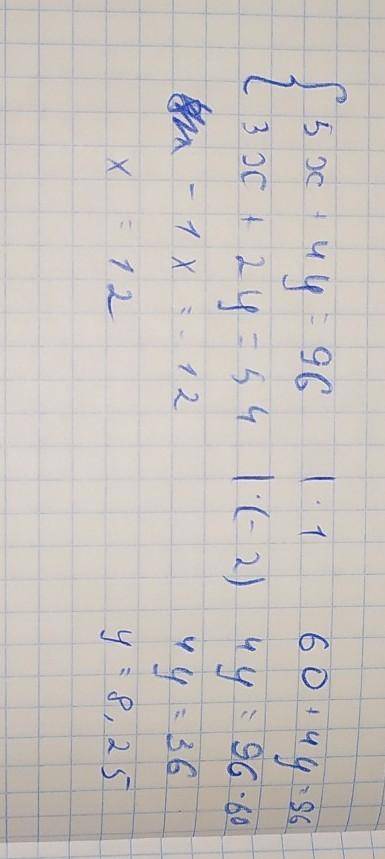 { 5x + 4y = 96 | · 1
3x + 2y = 54 | · (-2)
-1x = -12
x = 12
60 + 4y = 96
4y = 96 - 60
4y = 36
y = 8,25